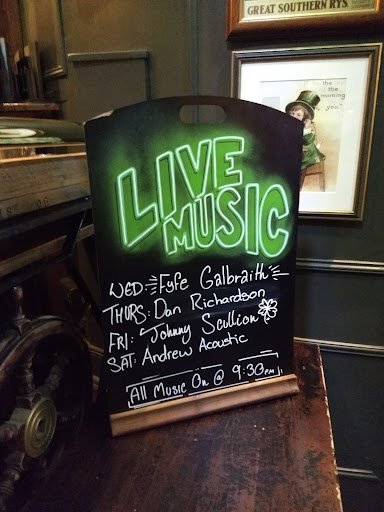 GREAT SOUTHERN RYS
the
the
morning
you."
LIVE
MUSIC
WED: Fyfe Galbraith
THURS: Dan Richardson
FRI: Johnny Scullion
SAT: Andrew Acoustic
All Music On @ 9:30pm